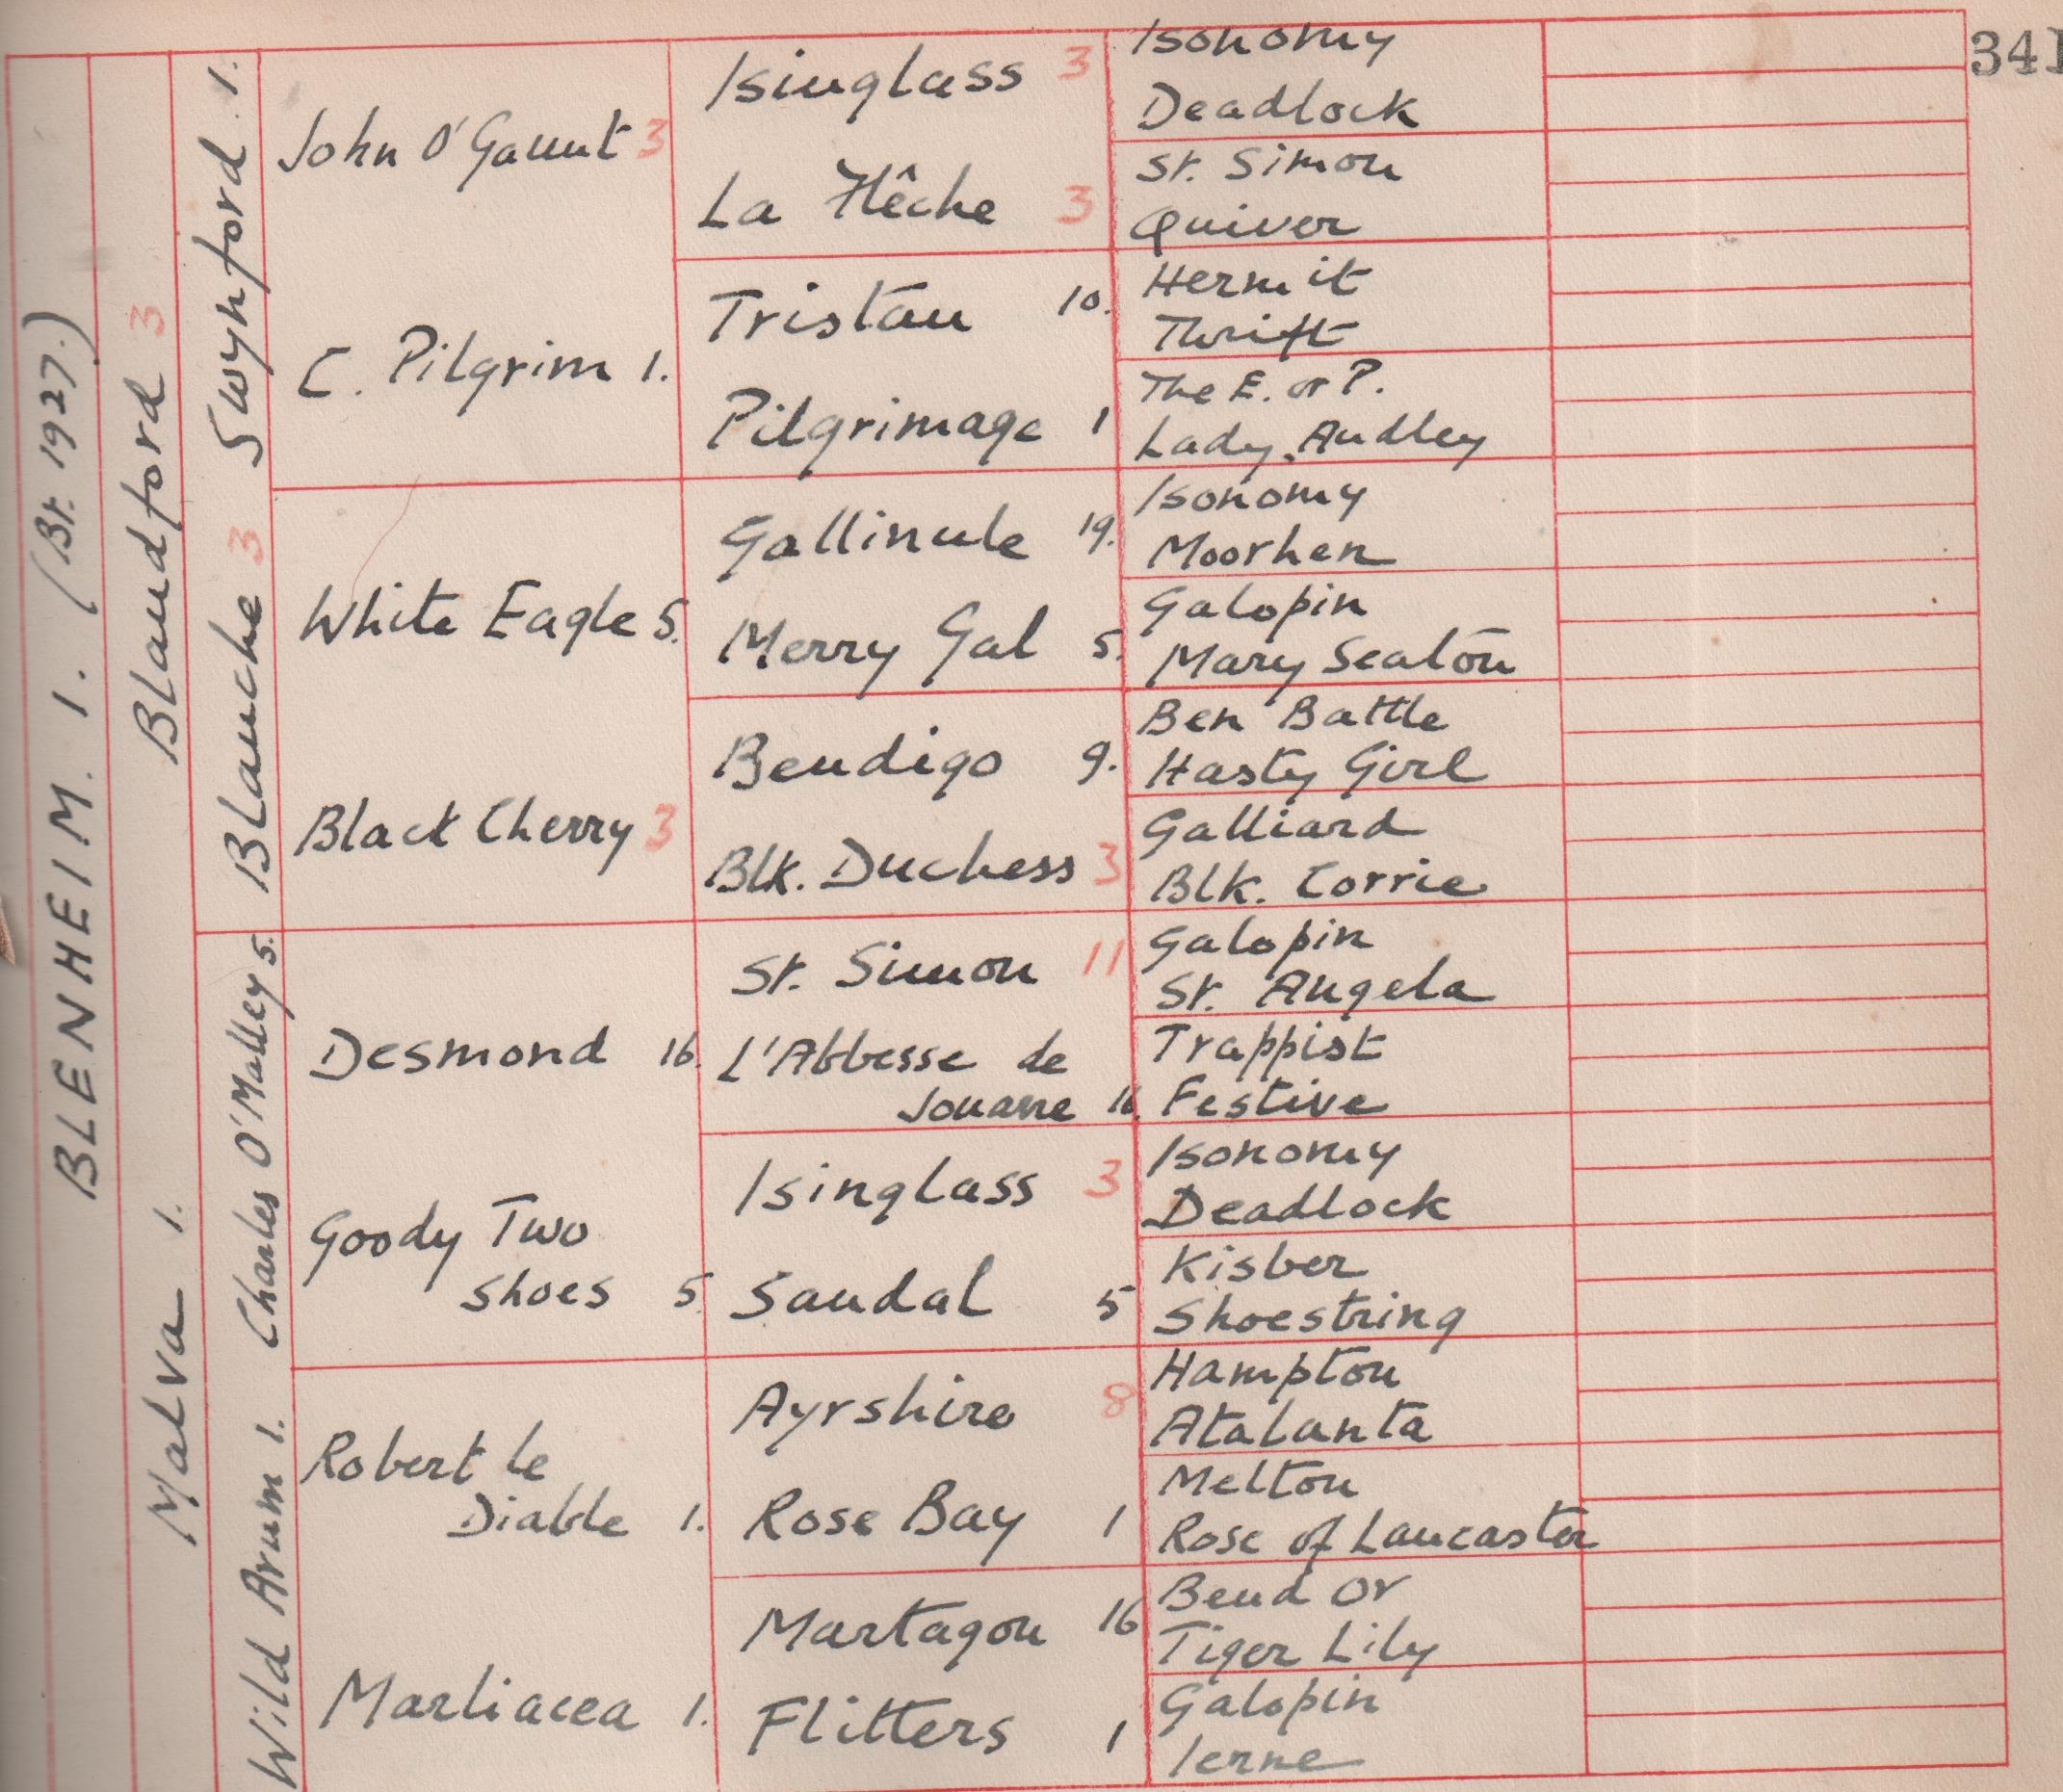 341
BLENHEIM. 1. (Br. 1927.)
Blandford 3
Malva 1.
Swynford 1.
Blanche 3
Charles O'Malley 5.
Wild Arum 1.
John O'Gaunt 3
C. Pilgrim 1.
White Eagle 5.
Black Cherry 3
Desmond 16.
Goody Two
Shoes 5.
Robert le
Diable 1.
Marliacea 1.
Isinglass 3
La Flêche 3
Tristan 10.
Pilgrimage 1
Gallinule 19.
Merry Gal 5.
Bendigo 9.
Blk. Duchess 3
St. Simon 11
L'Abbesse de
Jouarre 16
Isinglass 3
Sandal 5
Ayrshire 8
Rose Bay 1
Martagon 16
Flitters 1
Isonomy
Deadlock
St. Simon
Quiver
Hermit
Thrift
The E. or P.
Lady Audley
Isonomy
Moorhen
Galopin
Mary Seaton
Ben Battle
Hasty Girl
Galliard
Blk. Corrie
Galopin
St. Angela
Trappist
Festive
Isonomy
Deadlock
Kisber
Shoestring
Hampton
Atalanta
Melton
Rose of Lancaster
Bend Or
Tiger Lily
Galopin
Ierne